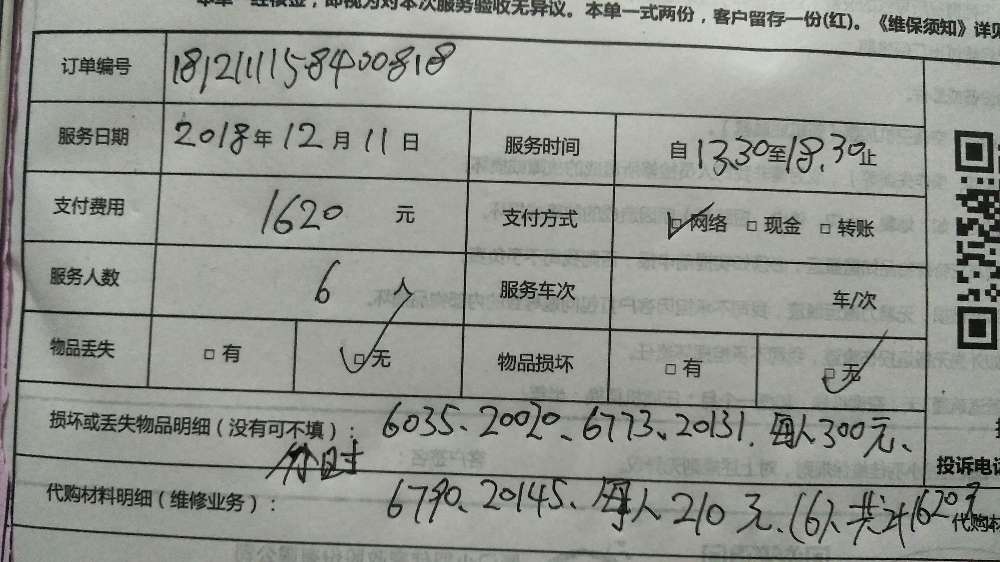 本单一经核金，即视为对本次服务验收无异议。本单一式两份，客户留存一份(红)。《维保须知》详见
订单编号 1812111158400818
服务日期 2018年12月11日 服务时间 自13.30至18.30止
支付费用 1620 元 支付方式 网络 现金 转账
服务人数 6 人 服务车次 车/次
物品丢失 有 无 物品损坏 有 无
损坏或丢失物品明细（没有可不填）： 6035、20020、6773、20131、每人300元、
分时
代购材料明细（维修业务）： 6790、20145、每人210元、(6)人共计1620元
投诉电话
代购材